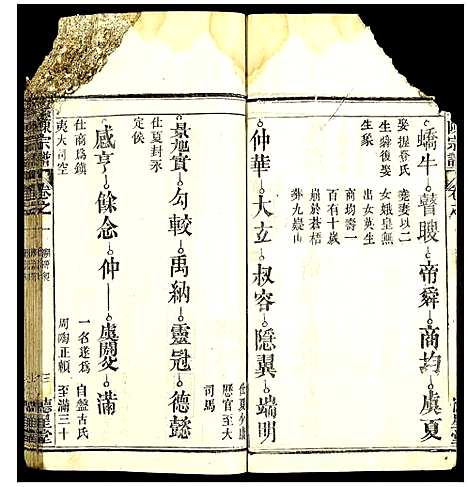 蟜牛 瞽瞍 帝舜 商均 虞夏
娶握登氏
生舜復娶
生象
堯妻以二
女娥皇無
出女英生
商均壽一
百有十歲
崩於蒼梧
葬九嶷山
仲華 大立 叔容 隱翼 端明
懸官至大
司馬
景旭實 勾較 禹納 靈冠 德懿
仕夏封永
定侯
感亨 餘念 仲 虞閼 滿
仕商為鎮
夷大司空
一名遂為
周陶正賴
自盤古氏
至滿三十
陳宗譜
卷之一
三
德星堂